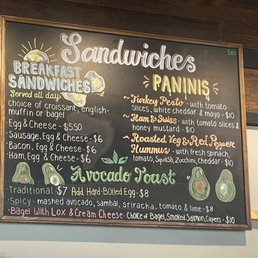 Sandwiches
BREAKFAST
SANDWICHES
Served all day
Choice of croissant, english-
muffin or bagel
Egg & Cheese - $5.50
Sausage, Egg & Cheese - $6
Bacon, Egg & Cheese - $6
Ham, Egg & Cheese - $6
PANINIS
~ Turkey Pesto - with tomato
slices, white cheddar & mayo - $10
~ Ham & Swiss - with tomato slices &
honey mustard - $10
~ Roasted Veg & Red Pepper
Hummus - with fresh spinach,
tomato, Squash, Zucchini, Cheddar - $10
Avocado Toast
Traditional - $7 Add Hard-Boiled Egg - $8
Spicy - mashed avocado, sambal, sriracha, tomato & lime - $8
Bagel With Lox & Cream Cheese - Choice of Bagel, Smoked Salmon, Capers - $10